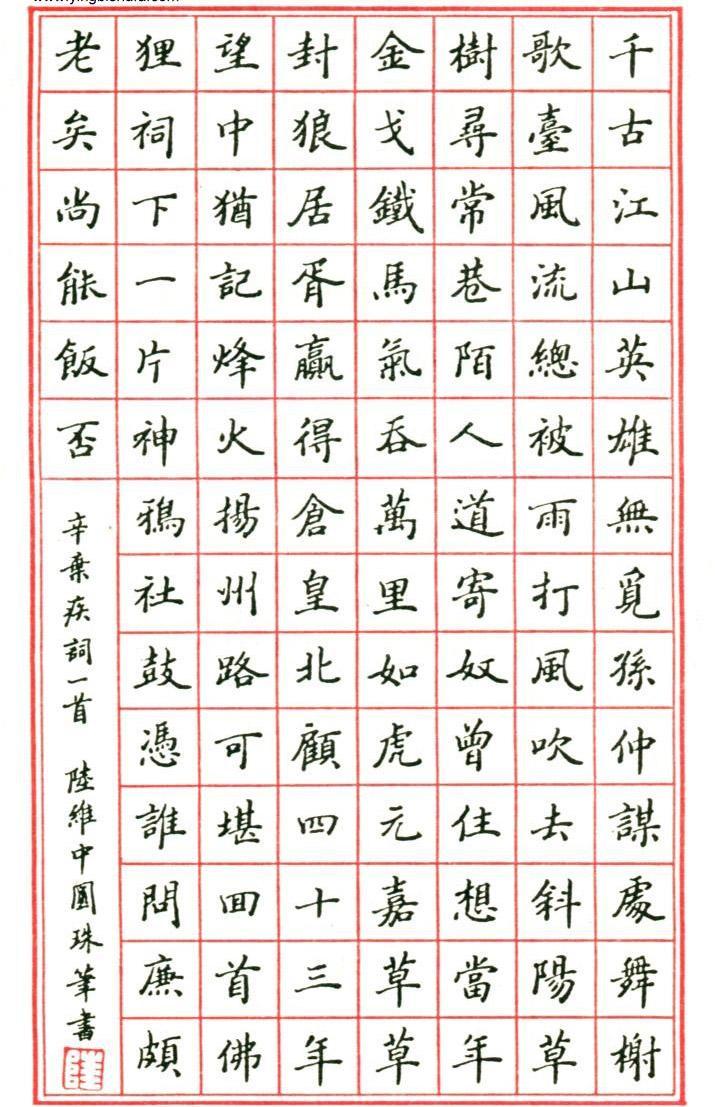 千古江山英雄無覓孫仲謀處舞榭
歌臺風流總被雨打風吹去斜陽草
樹尋常巷陌人道寄奴曾住想當年
金戈鐵馬氣吞萬里如虎元嘉草草
封狼居胥贏得倉皇北顧四十三年
望中猶記烽火揚州路可堪回首佛
狸祠下一片神鴉社鼓憑誰問廉頗
老矣尚能飯否
辛棄疾詞一首 陸維中圓珠筆書